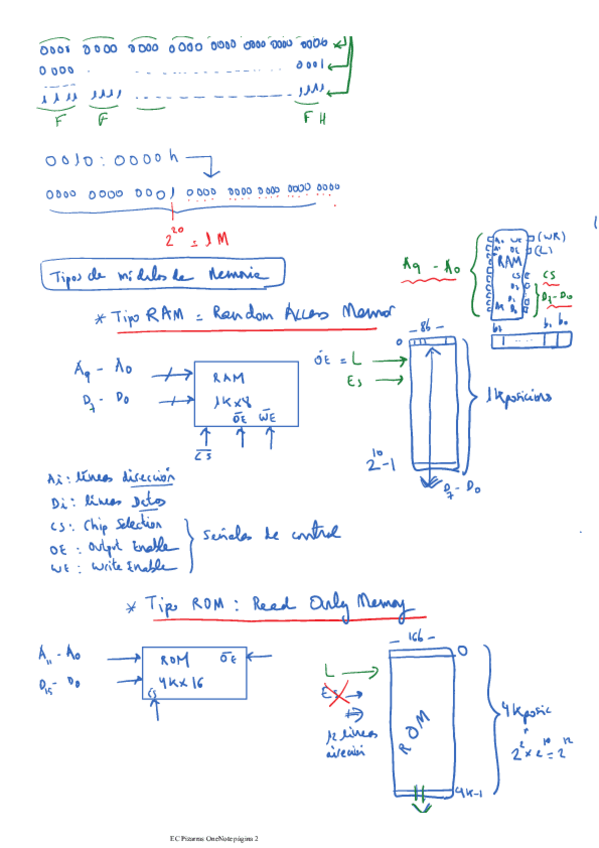 0000 0000 0000 0000 0000 0000 0000 0000
0 000 0001
1111 1111 1111
F F F H
0010:0000h
0000 0000 0001 0000 0000 0000 0000 0000
2^20 = 1M
Tipos de módulos de memoria
* Tipo RAM = Random Access Memor
A9 - A0
D7 - D0
RAM
1K x 8
OE WE
CS
A9 - A0
RAM
(WR)
(L)
CS
D7 - D0
b7 b1 b0
- 8b -
0
OE = L
Es
1K posiciones
2^10 - 1
D7 - D0
Ai: líneas dirección
Di: líneas Datos
CS: Chip Selection
OE: Output Enable
WE: Write Enable
Señales de control
* Tipo ROM: Read Only Memory
A11 - A0
D15 - D0
ROM OE
4K x 16
CS
- 16b -
0
L
Es
12 líneas
dirección
ROM
4K posic
2^2 x 2^10 = 2^12
4K-1
EC Pizarra OneNote página 2